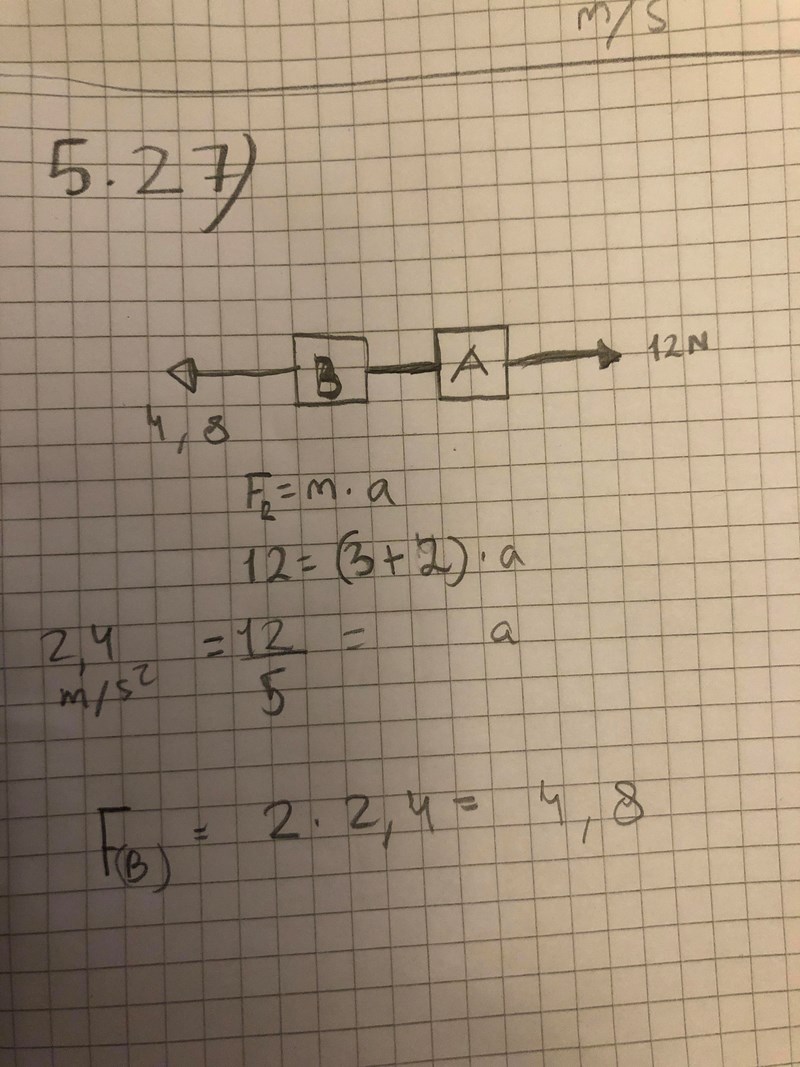 m/s
5.27)
B A 12N
4,8
F₂ = m · a
12 = (3+2) · a
2,4 m/s² = 12/5 = a
F(B) = 2 · 2,4 = 4,8